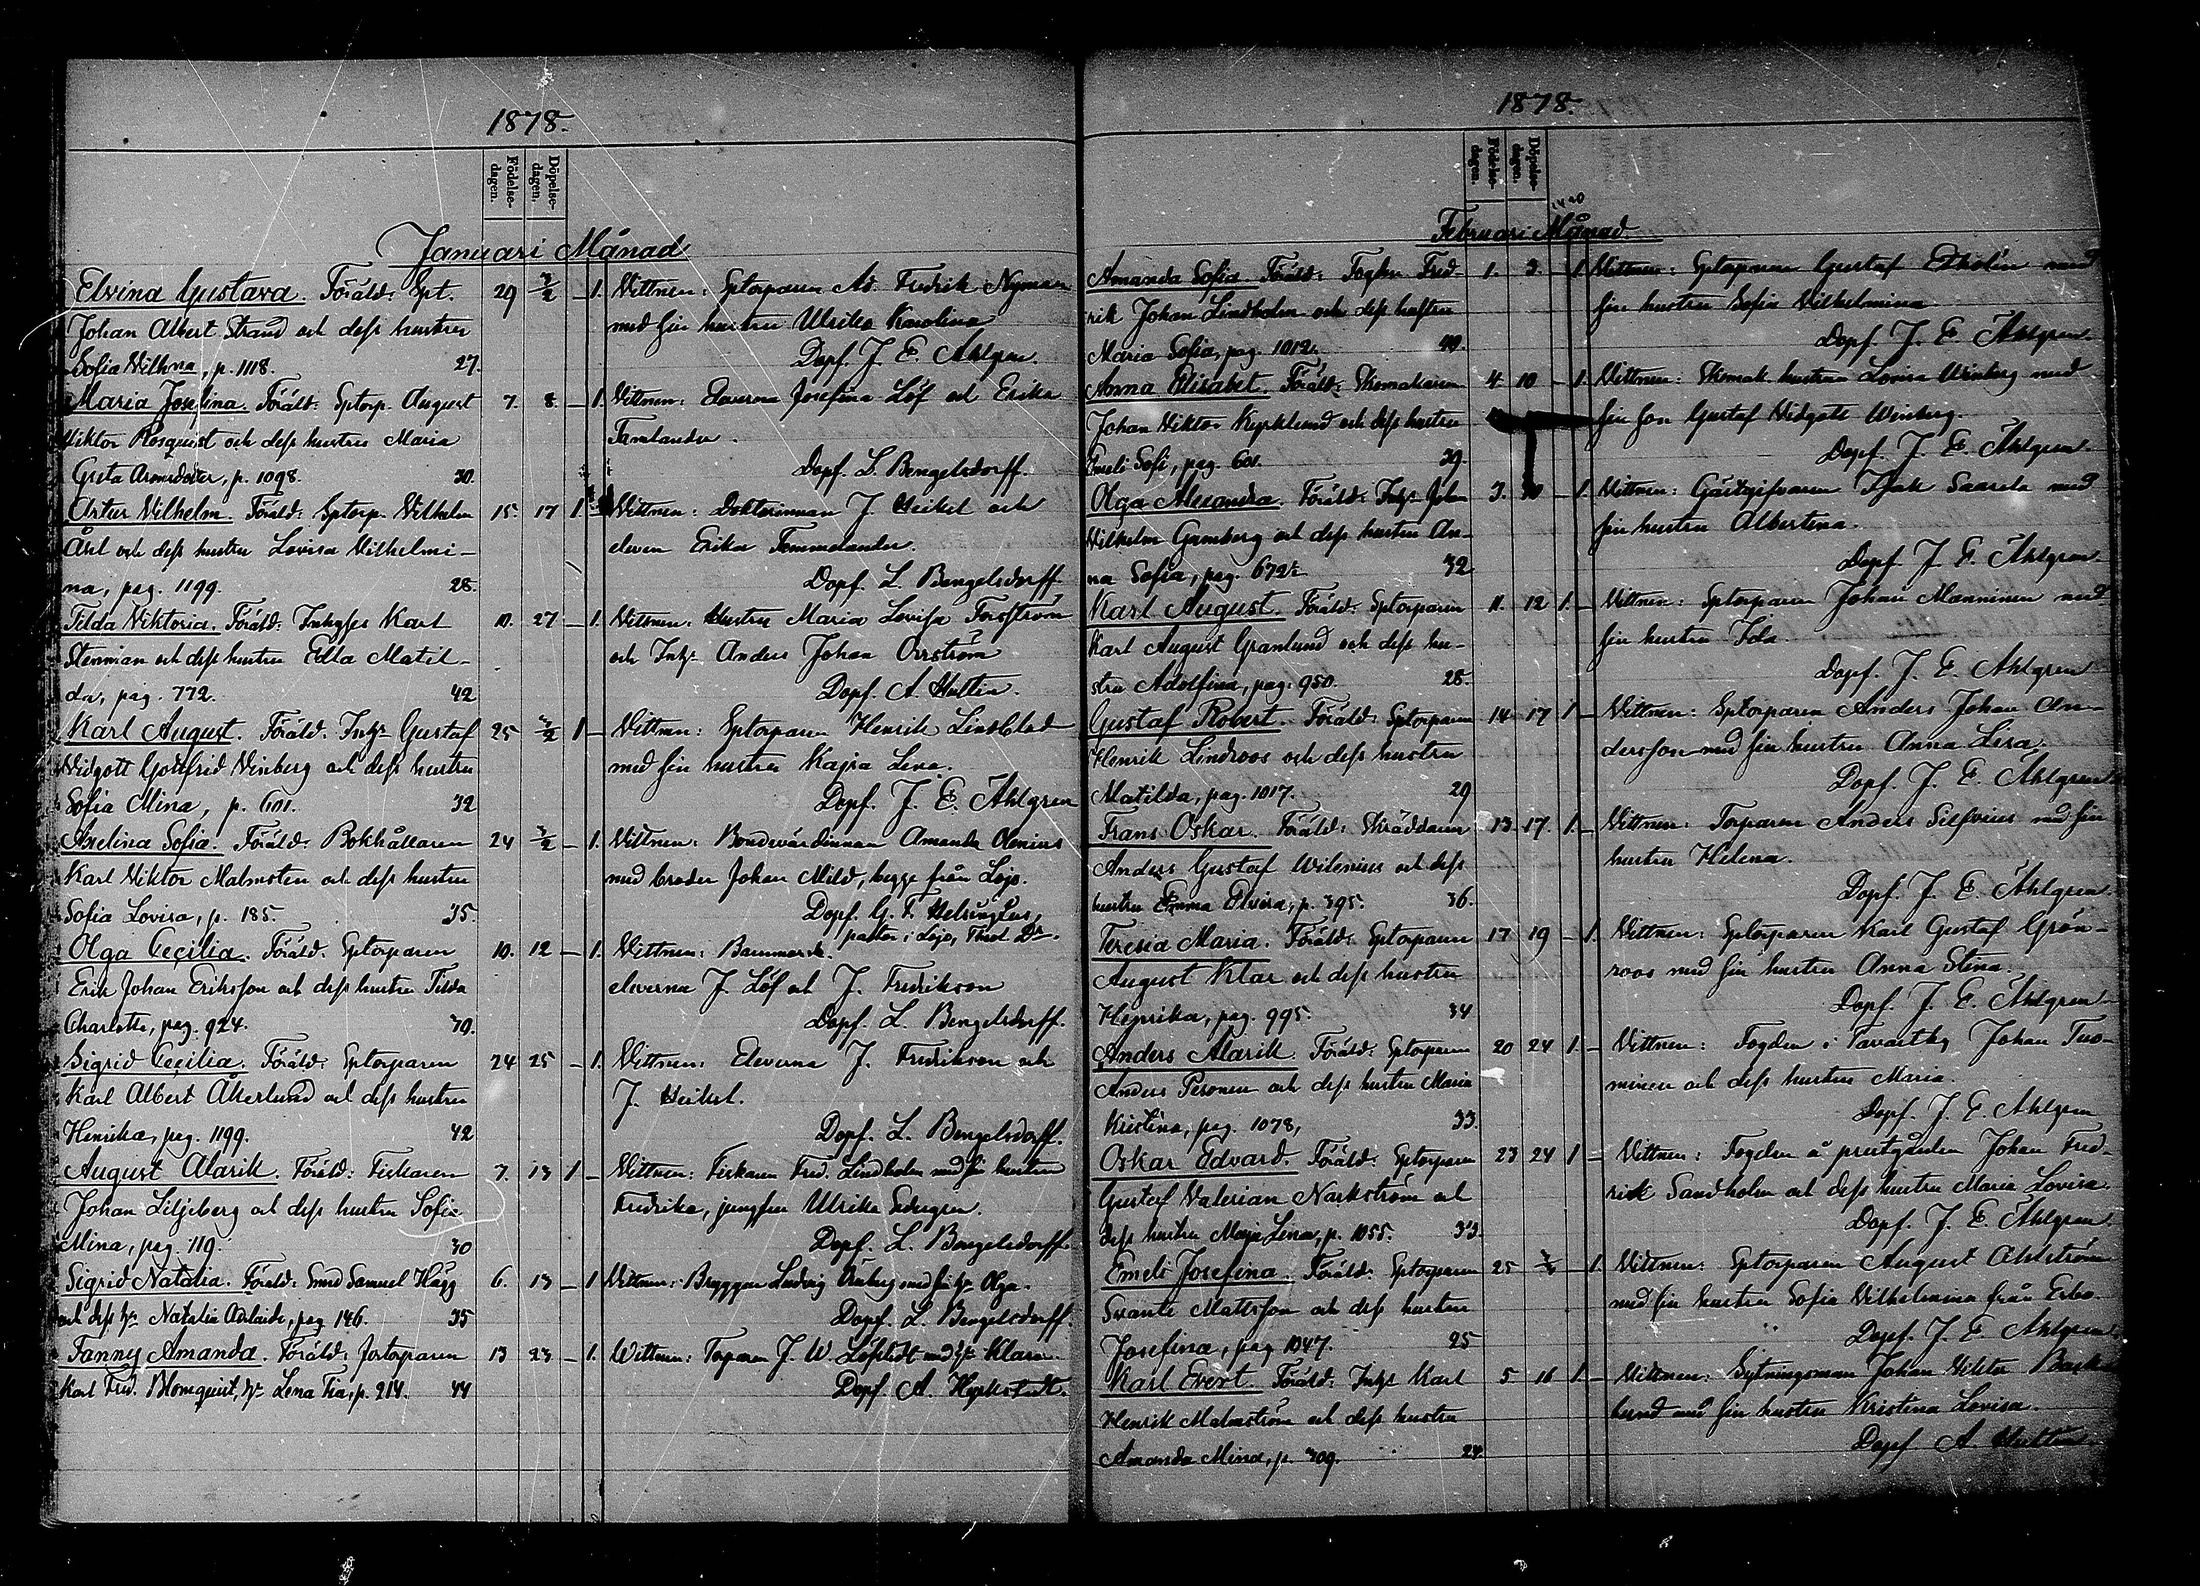 1878.
Födelse-dagen.
Döpelse-dagen.
Januari Månad
Elvina Gustava. Föräld: Spt. 29 3/2 – 1. Vittnen: Sptorparen Ad. Fredrik Nyman
Johan Albert Strand och dess hustru med sin hustru Ulrika Karolina
Sofia Vilhna, p. 1118. 27. Dopf. J. E. Ahlgren.
Maria Josefina. Föräld: Sptorp. August 7. 8. – 1. Vittnen: Eleverna Josefina Löf och Erika
Viktor Rosquist och dess hustru Maria
Greta Aronsdotter, p. 1098. 30. Dopf. L. Bengelsdorff.
Artur Vilhelm. Föräld: Sptorp. Vilhelm 15 17 1. – Vittnen: Doktorinnan J. Heikel och
och dess hustru Lovisa Vilhelmi- eleven Erika
na, pag. 1199. 28. Dopf. L. Bengelsdorff
Tilda Viktoria. Föräld: Karl 10. 27 – 1. Vittnen: Hustru Maria Lovisa Forsström
Stenman och dess hustru Edla Matil- och Inhs Anders Johan Orrström
da, pag. 772. 42 Dopf. A. Hultin.
Karl August. Föräld: Inhs Gustaf 25 3/2 1 – Vittnen: Sptorparen Henrik Lindblad
Vidgott Gottfrid Vinberg och dess hustru med sin hustru Kajsa Lena.
Sofia Mina, p. 601. 32 Dopf. J. E. Ahlgren
Axelina Sofia. Föräld: Bokhållaren 24 3/2 – 1. Vittnen: Bondevärdinnan Amanda Alenius
Karl Viktor Malmsten och dess hustru med broder Johan Mild, begge från Lojo.
Sofia Lovisa, p. 185. 35. Dopf. G. F. Helsingius,
pastor i Lojo, Theol. Dr.
Olga Cecilia. Föräld: Sptorparen 10. 12 – 1. Vittnen: Barnmorsk.
Erik Johan Eriksson och dess hustru Tilda eleverna J. Löf och J. Fredrikson
Charlotta, pag. 924. 39. Dopf. L. Bengelsdorff.
Sigrid Cecilia. Föräld: Sptorparen 24 25 – 1. Vittnen: Eleverna J. Fredrikson och
Karl Albert Åkerlund och dess hustru J. Heikel.
Henrika, pag. 1199. 42 Dopf. L. Bengelsdorff.
August Alarik. Föräld: Fiskaren 7. 13 1 – Vittnen: Fiskaren Fred. Lindholm med sin hustru
Johan Liljeberg och dess hustru Sofia Fredrika, jungfru Ulrika
Mina, pag. 119. 30 Dopf. L. Bengelsdorff.
Sigrid Natalia. Föräld: Smed Samuel Hägg 6. 13 – 1 Vittnen: Bryggaren Ludvig med sin hu Olga.
och dess hu Natalia Adelaide, pag 146. 35 Dopf. L. Bengelsdorff.
Fanny Amanda. Föräld: 13 23 – 1. Vittnen: Torparen J. W. Löfstedt med hu Klara.
Karl Fred. Blomquist, hu Lena Tia, p. 214. 44 Dopf. A. Hyrkstedt.
1878.
Födelse-dagen.
Döpelse-dagen.
Februari Månad
Amanda Sofia. Föräld: Fogden Fred- 1. 3. – 1. Vittnen: Sptorparen Gustaf Ekholm med
rik Johan Lindholm och dess hustru sin hustru Sofia Vilhelmina
Maria Sofia, pag. 1012. 40. Dopf. J. E. Ahlgren.
Anna Elisabet. Föräld: Skomakaren 4 10 – 1. Vittnen: Skomak. hustrun Lovisa Winberg med
Johan Viktor Kyrklund och dess hustru sin son Gustaf Vidgott Winberg.
Emeli Sofi, pag. 601. 39. Dopf. J. E. Ahlgren.
Olga Alexandra. Föräld: Inhs Joh 3. 10 – 1. Vittnen: Gästgifvaren Isak Saarela med
Vilhelm Granberg och dess hustru An- sin hustru Albertina.
na Sofia, pag. 672. 32 Dopf. J. E. Ahlgren
Karl August. Föräld: Sptorparen 11. 12 1. – Vittnen: Sptorparen Johan Manninen med
Karl August Granlund och dess hu- sin hustru Ida.
stru Adolfina, pag. 950. 28. Dopf. J. E. Ahlgren
Gustaf Robert. Föräld: Sptorparen 14 17 1 – Vittnen: Sptorparen Anders Johan An-
Henrik Lindroos och dess hustru dersson med sin hustru Anna Lisa.
Matilda, pag. 1017. 29 Dopf. J. E. Ahlgren
Frans Oskar. Föräld: Skräddaren 13 17. 1. – Vittnen: Torparen Anders Silfvius med sin
Anders Gustaf Wilenius och dess hustru Helena.
hustru Emma Elvira, p. 395. 36. Dopf. J. E. Ahlgren
Teresia Maria. Föräld: Sptorparen 17 19 – 1. Vittnen: Sptorparen Karl Gustaf Grön-
August Klar och dess hustru roos med sin hustru Anna Stina.
Henrika, pag. 995. 34 Dopf. J. E. Ahlgren
Anders Alarik. Föräld: Sptorparen 20 24 1. – Vittnen: Fogden i Tavastby Johan Tuo-
Anders Pesonen och dess hustru Maria minen och dess hustru Maria.
Kristina, pag. 1078, 33. Dopf. J. E. Ahlgren
Oskar Edvard. Föräld: Sptorparen 23 24 1 – Vittnen: Fogden å prestgården Johan Fred-
Gustaf Valerian Narkström och rik Sandholm och dess hustru Maria Lovisa.
dess hustru Maja Lena, p. 1055. 33. Dopf. J. E. Ahlgren.
Emeli Josefina. Föräld: Sptorparen 25 – 1. Vittnen: Sptorparen August Ahlström
Svante Mattsson och dess hustru med sin hustru Sofia Vilhelmina från
Josefina, pag 1047. 25 Dopf. J. E. Ahlgren.
Karl Evert. Föräld: Inhs Karl 5 16 1. – Vittnen: Sytningsman Johan Viktor Back
Henrik Malmström och dess hustru lund med sin hustru Kristina Lovisa.
Amanda Mina, p. 309. 24. Dopf. A. Hultin.